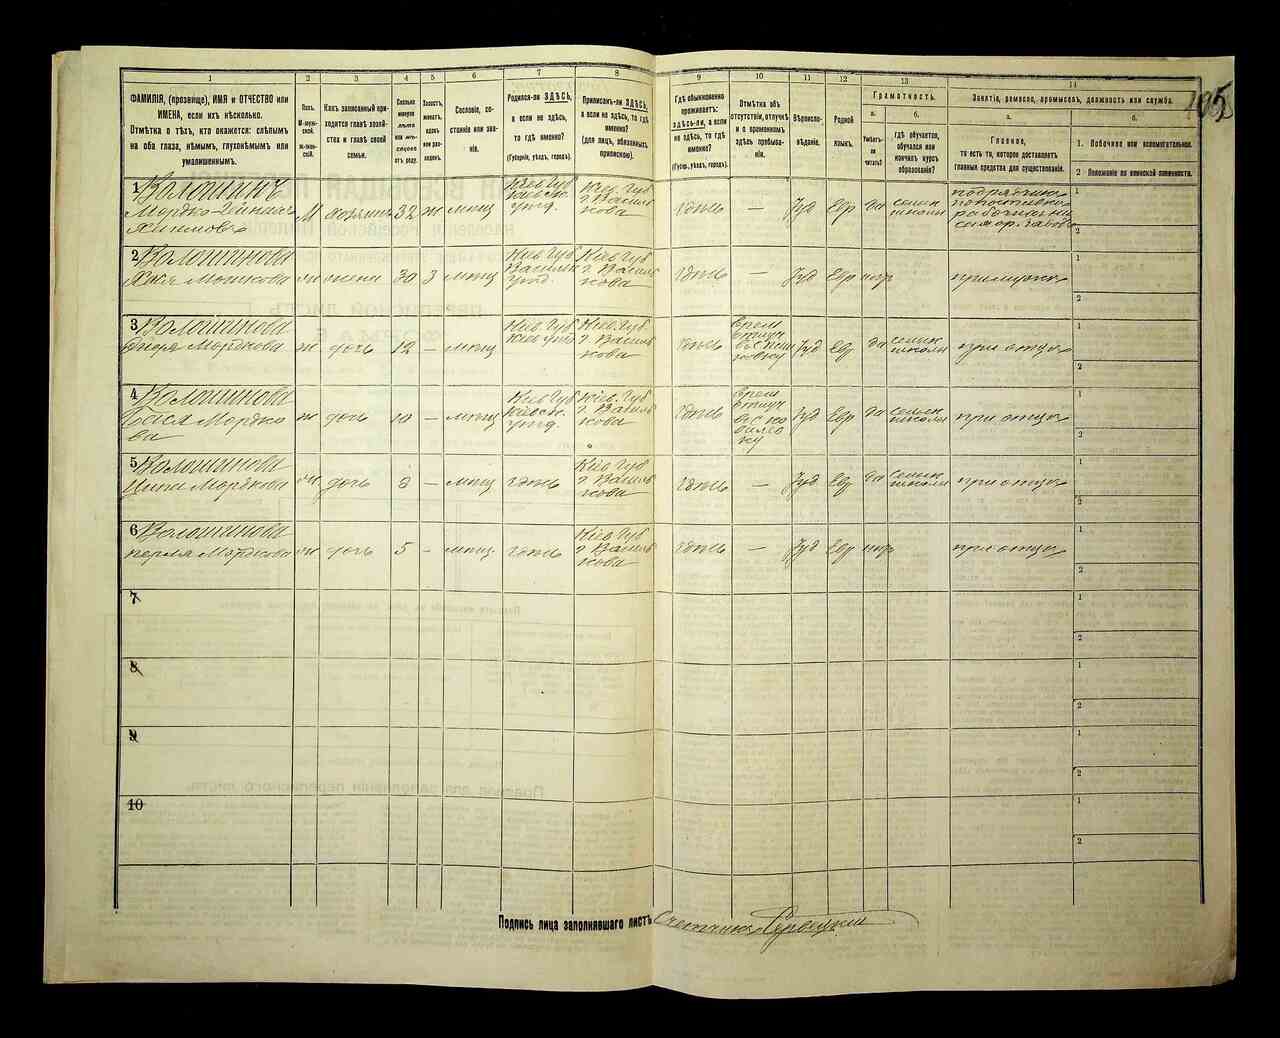 105
1 2 3 4 5 6 7 8 9 10 11 12 13 14
ФАМИЛІЯ, (прозвище), ИМЯ и ОТЧЕСТВО или
ИМЕНА, если ихъ нѣсколько.
Отмѣтка о тѣхъ, кто окажется: слѣпымъ
на оба глаза, нѣмымъ, глухонѣмымъ или
умалишеннымъ.
Полъ.
М-муж-
ской.
Ж-жен-
скій.
Какъ записанный при-
ходится главѣ хозяй-
ства и главѣ своей
семьи.
Сколько
минуло
лѣтъ
или мѣ-
сяцевъ
отъ роду.
Холостъ,
женатъ,
вдовъ
или раз-
веденъ.
Сословіе, со-
стояніе или зва-
ніе.
Родился-ли ЗДѢСЬ,
а если не здѣсь,
то гдѣ именно?
(Губернія, уѣздъ, городъ).
Приписанъ-ли ЗДѢСЬ,
а если не здѣсь, то гдѣ
именно?
(для лицъ, обязанныхъ
припискою).
Гдѣ обыкновенно
проживаетъ:
здѣсь-ли, а если
не здѣсь, то гдѣ
именно?
(Губ., уѣздъ, городъ).
Отмѣтка объ
отсутствіи, отлучкѣ
и о временномъ
здѣсь пребыва-
ніи.
Вѣроиспо-
вѣданіе.
Родной
языкъ.
Грамотность.
а.
Умѣетъ-
ли
читать?
б.
Гдѣ обучается,
обучался или
кончилъ курсъ
образованія?
Занятіе, ремесло, промыселъ, должность или служба.
а.
Главное,
то есть то, которое доставляетъ
главныя средства для существованія.
б.
1. Побочное или вспомогательное.
2 Положеніе по воинской повинности.
1 Волошинъ
Мордко
М хозяинъ 32 ж мѣщ
Кіев. Губ
Кіевск.
уѣзд.
Кіев. Губ
г. Василь
кова
здѣсь — Іуд Евр да
школы
1
2
2 Волошинова
Хая Мошкова
ж жена 30 з мѣщ
Кіев. Губ
уѣзд.
Кіев. Губ
г. Василь
кова
здѣсь — Іуд Евр нѣт при мужѣ
1
2
3 Волошинова
Мордкова
ж дочь 12 — мѣщ
Кіев. Губ
Кіев. уѣзд
Кіев. Губ.
г. Василь
кова
здѣсь
врем
отлуч
Іуд Евр да
школы
при отцѣ
1
2
4 Волошинова
Бася Мордко
ва
ж дочь 10 — мѣщ
Кіев. Губ
Кіевск.
уѣзд.
Кіев. Губ
г. Василь
кова
здѣсь
врем
отлуч
Іуд Евр да
школы
при отцѣ
1
2
5 Волошинова
Ципа Мордкова
ж дочь 8 — мѣщ здѣсь
Кіев Губ
г. Василь
кова
здѣсь — Іуд Евр да
школы
при отцѣ
1
2
6 Волошинова
Перля Мордкова
ж дочь 5 — мѣщ здѣсь
Кіев Губ
г. Василь
кова
здѣсь — Іуд Евр нѣт при отцѣ
1
2
7
1
2
8
1
2
9
1
2
10
1
2
Подпись лица заполнявшаго листъ Счетчикъ